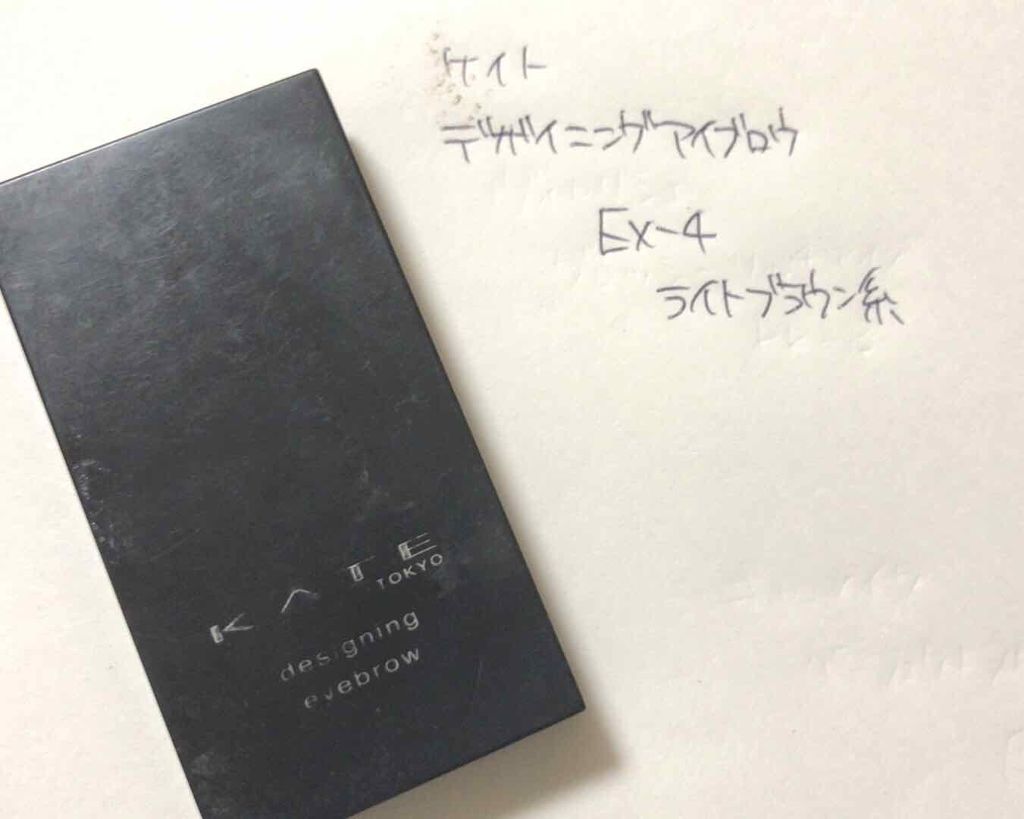 ケイト
デザイニングアイブロウ
EX-4
ライトブラウン系
KATE
TOKYO
designing
eyebrow